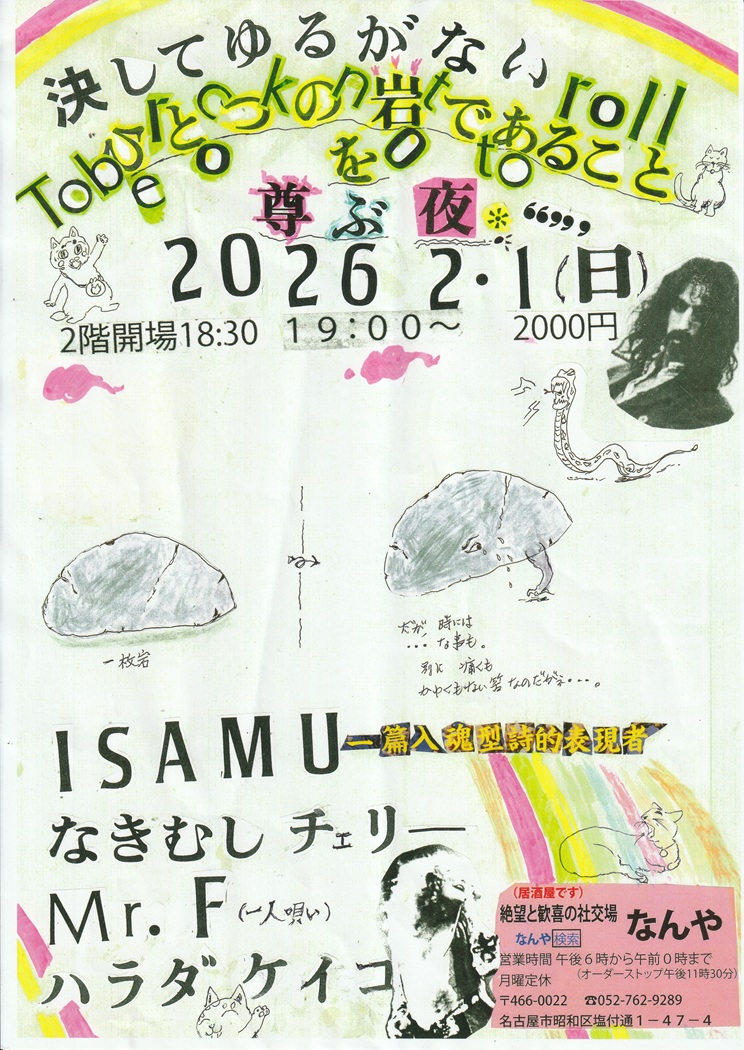 決してゆるがない
To be rock n not to roll
とつの岩であること
を
尊ぶ夜*“““„„
2026 2・1(日)
2階開場18:30 19:00〜 2000円
一枚岩
だが、時には
・・・な事も。
別に 痛くも
かゆくもない筈なのだがネ・・・。
ISAMU 一篇入魂型詩的表現者
なきむしチェリー
Mr. F (一人唄い)
ハラダケイコ
(居酒屋です)
絶望と歓喜の社交場 なんや
なんや 検索
営業時間 午後6時から午前0時まで
月曜定休 (オーダーストップ午後11時30分)
〒466-0022 ☎052-762-9289
名古屋市昭和区塩付通1-47-4